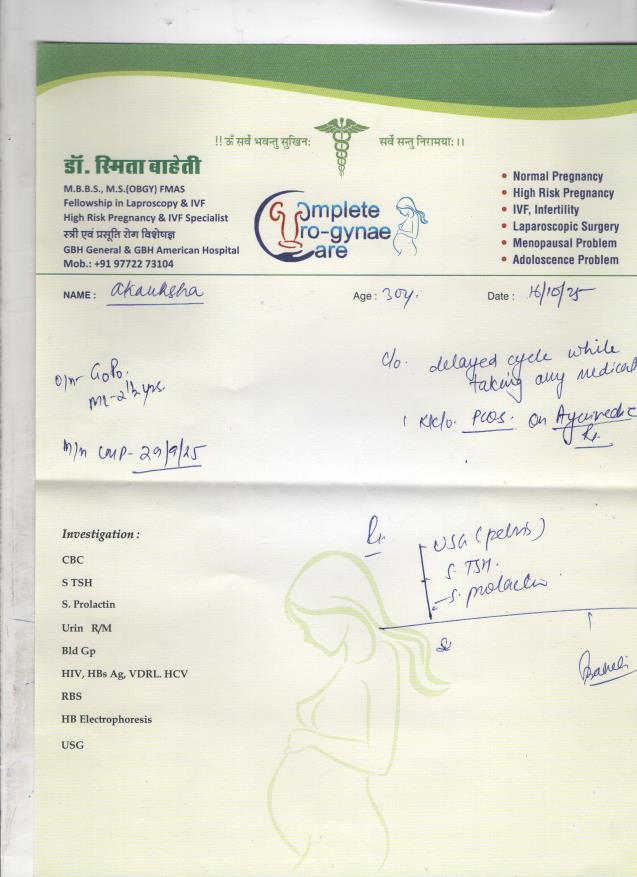 !! ॐ सर्वे भवन्तु सुखिनः सर्वे सन्तु निरामयाः।।
डॉ. स्मिता बाहेती
M.B.B.S., M.S.(OBGY) FMAS
Fellowship in Laproscopy & IVF
High Risk Pregnancy & IVF Specialist
स्त्री एवं प्रसूति रोग विशेषज्ञ
GBH General & GBH American Hospital
Mob.: +91 97722 73104
Complete
Uro-gynae
Care
• Normal Pregnancy
• High Risk Pregnancy
• IVF, Infertility
• Laparoscopic Surgery
• Menopausal Problem
• Adoloscence Problem
NAME : Akanksha Age : 30y. Date : 16/10/25
c/o. delayed cycle while
taking any medicat
K/c/o. PCOS. on Ayurvedic
Rx.
O/H- G0P0.
ML-2 1/2 yrs.
M/H LMP- 29/9/25
Rx.
USG (pelvis)
S. TSH.
S. prolactin
Investigation :
CBC
S TSH
S. Prolactin
Urin R/M
Bld Gp
HIV, HBs Ag, VDRL. HCV
RBS
HB Electrophoresis
USG